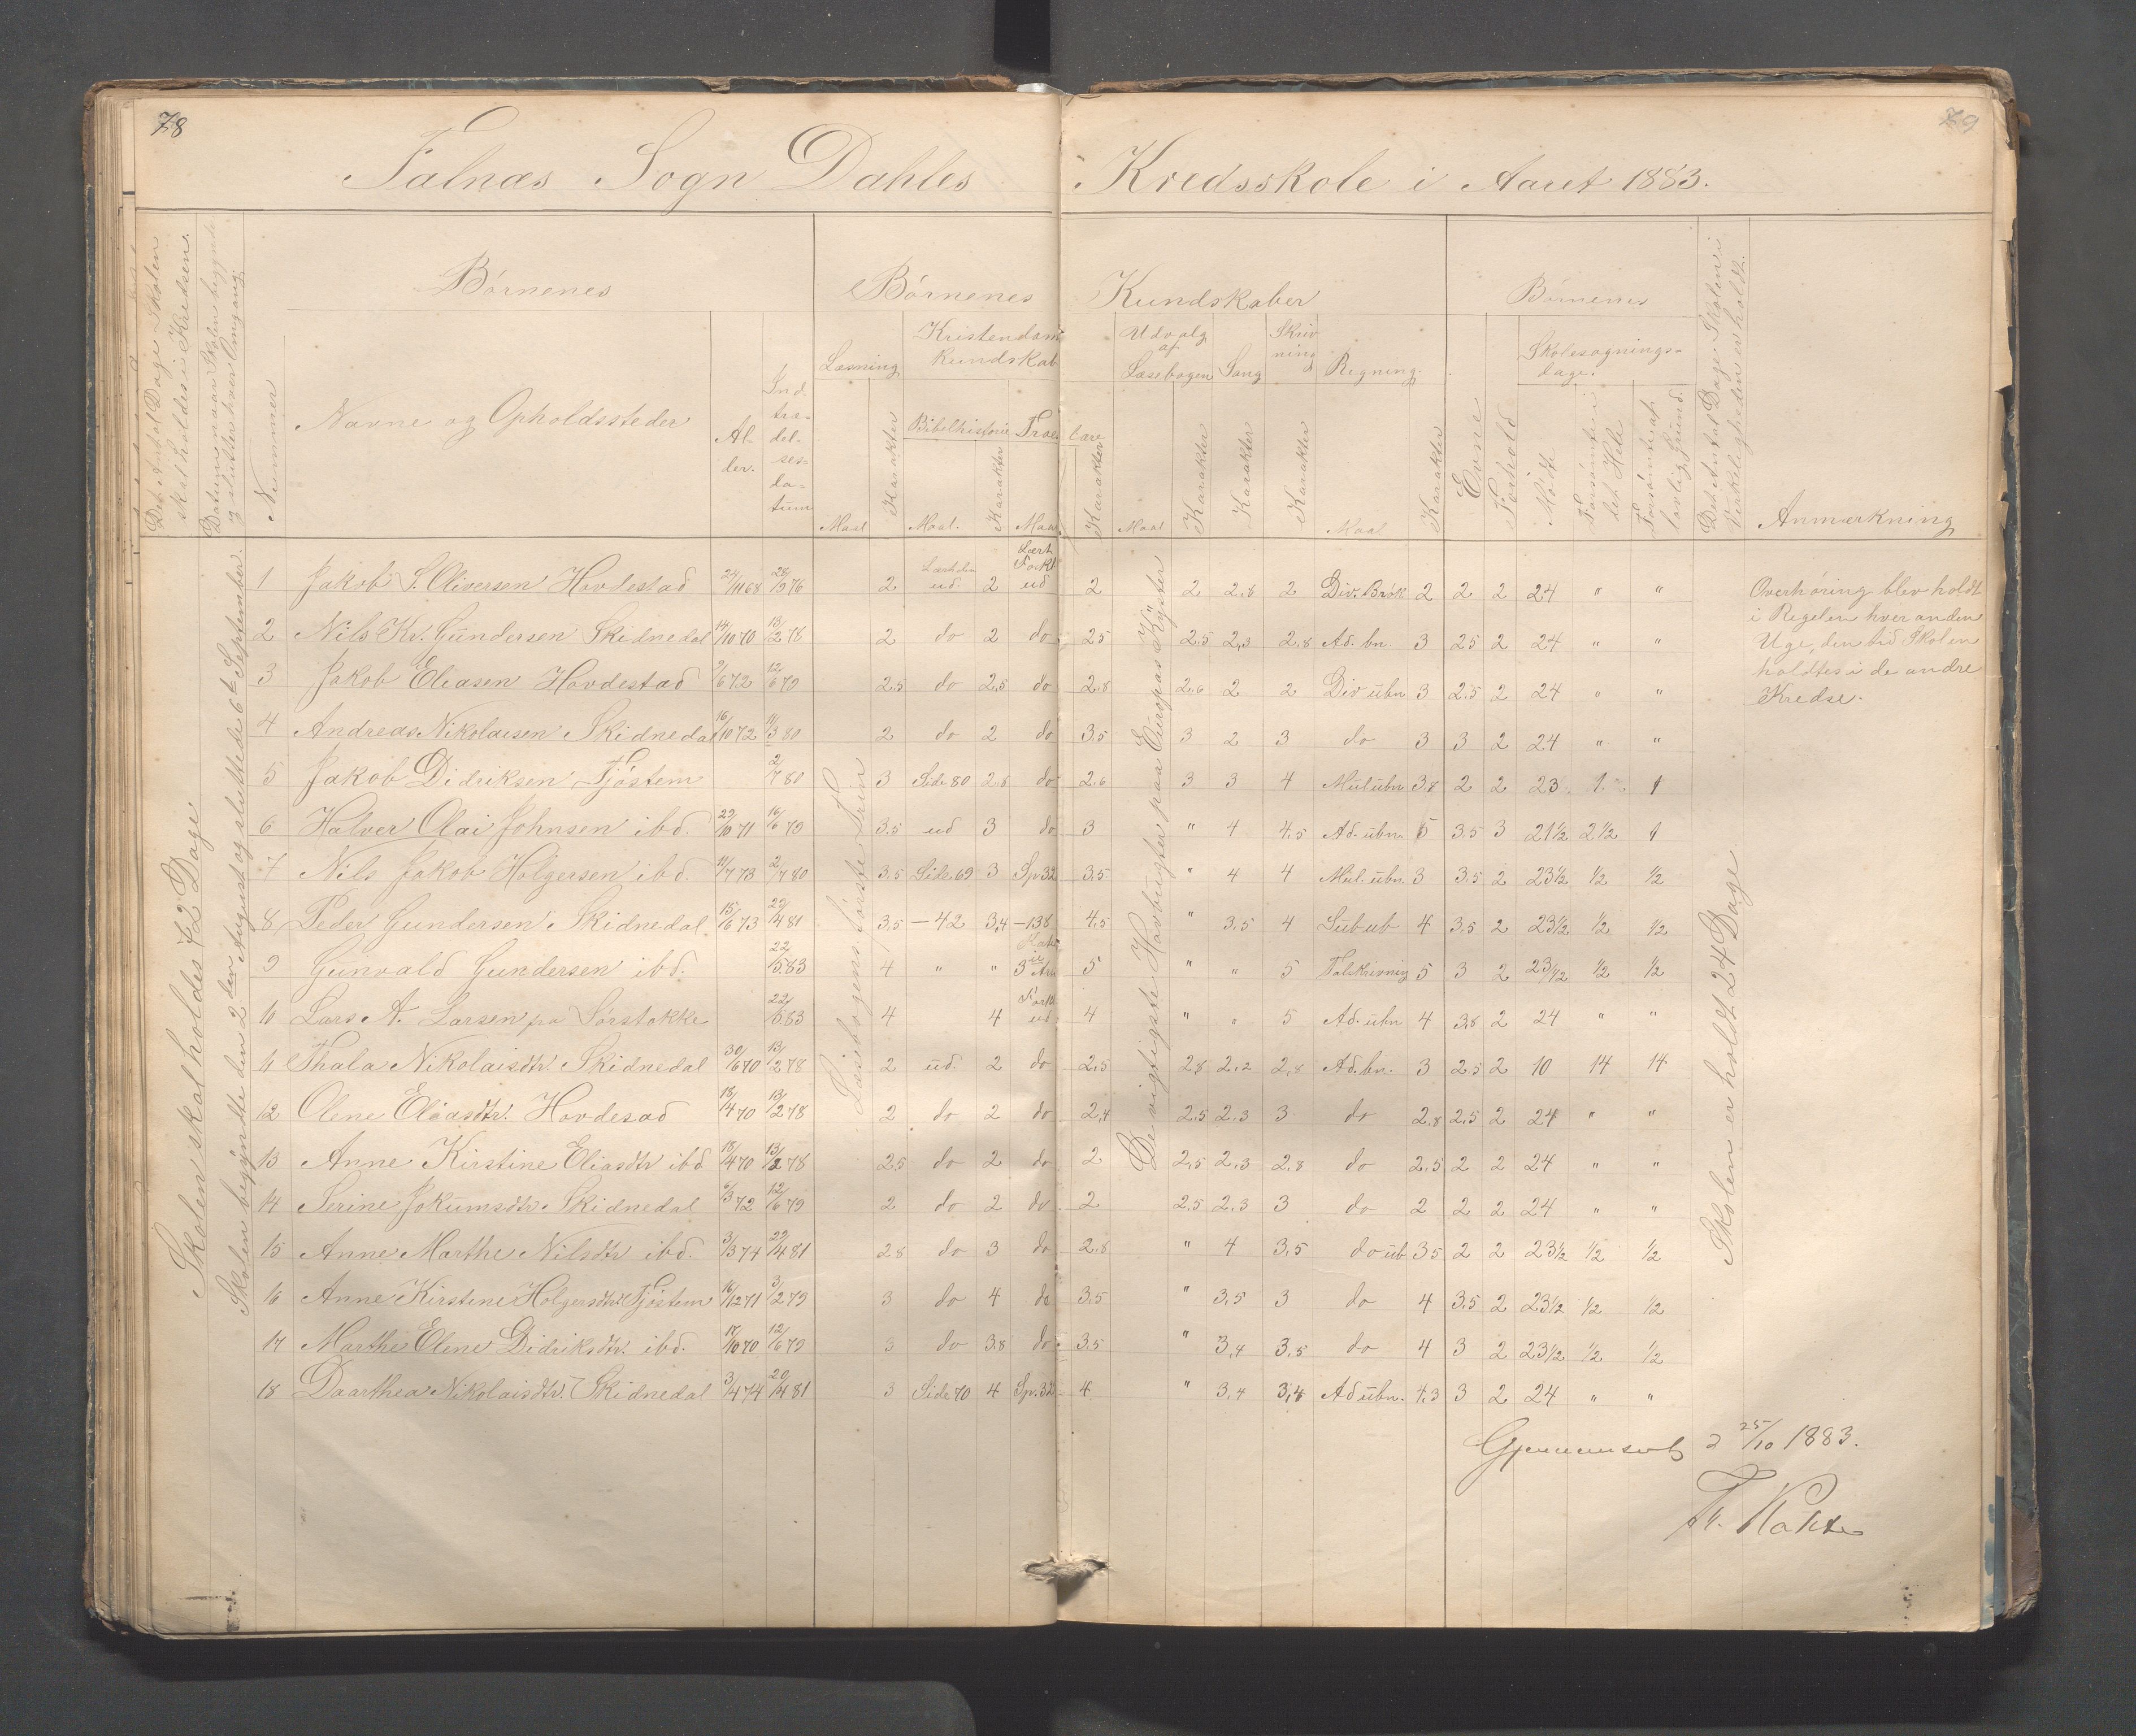 78
79
Falnæs Sogn Dahles Kredsskole i Aaret 1883.
Det Antal Dage Skolen skal holdes i Kredsen.
Datum naar Skolen begynder og slutter hver Omgang.
Nummer
Børnenes
Navne og Opholdssteder
Al-
der.
Ind-
træ-
del-
ses-
da-
tum
Børnenes Kundskaber
Læsning
Maal
Karakter
Kristendoms
kundskab
Bibelhistorie
Maal.
Karakter
Troeslære
Maal
Karakter
Udvalg
af
Læsebogen
Maal
Karakter
Sang
Karakter
Skriv
ning
Karakter
Regning.
Maal
Karakter
Børnenes
Evne
Forhold
Skolesøgnings-
dage.
Mødt
Forsømte i det Hele
Forsømte af lovlig Grund.
Det Antal Dage Skolen i Virkeligheden er holdt.
Anmærkning
Skolen skal holdes 72 Dage
Skolen begyndte den 2den August og sluttede 6te September.
Læsebogens første Trin
De vigtigste Havbugter paa Europas Kyster
Skolen er holdt 24 Dage
1 Jakob S. Oliversen Hovdestad 24/11 68 28/9 76 2 Lært den ud. 2 Lært Forkl ud 2 2 2,8 2 Div. Brøk 2 2 2 24 " "
2 Nils Kr. Gundersen Skidnedal 14/10 70 13/2 78 2 do 2 do 2.5 2.5 2,3 2.8 Ad. bn. 3 2.5 2 24 " "
3 Jakob Eliasen Hovdestad 9/6 72 12/6 79 2.5 do 2,5 do 2.8 2.6 2 2 Div ubn 3 2.5 2 24 " "
4 Andreas Nikolaisen Skidnedal 16/10 72 11/3 80 2 do 2 do 3.5 3 2 3 do 3 3 2 24 " "
5 Jakob Didriksen Tjøstem 2/7 80 3 Side 80 2.8 do 2.6 3 3 4 Mul ubn 3.8 2 2 23 1. 1
6 Halver Olai Johnsen ibd. 29/10 71 16/6 79 3.5 ud 3 do 3 " 4 4.5 Ad. ubn. 5 3.5 3 21 1/2 2 1/2 1
7 Nils Jakob Holgersen ibd. 11/7 73 2/7 80 3.5 Side 69 3 Sp 32 3.5 " 4 4 Mul. ubn. 3 3.5 2 23 1/2 1/2 1/2
8 Peder Gundersen Skidnedal. 15/6 73 29/4 81 3.5 — 42 3,4 — 138 4.5 " 3.5 4 Sub ub 4 3.5 2 23 1/2 1/2 1/2
9 Gunvald Gundersen ibd. 22/5 83 4 " " 3 Art 5 " " 5 Talskrivning 5 3 2 23 1/2 1/2 1/2
10 Lars A. Larsen pa Sørstokke 22/5 83 4 4 Forkl. ud. 4 " " 5 Ad. ubn 4 3.8 2 24 " "
11 Thala Nikolaisdtr Skidnedal 30/6 70 13/2 78 2 ud. 2 do 2,5 2.8 2.2 2,8 Ad. bn. 3 2.5 2 10 14 14
12 Olene Eliasdtr. Hovdesad 18/4 70 13/2 78 2 do 2 do 2,4 2.5 2.3 3 do 2.8 2,5 2 24 " "
13 Anne Kirstine Eliasdtr ibd 18/4 70 13/2 78 2.5 do 2 do 2 2,5 2,3 2,8 do 2.5 2 2 24 " "
14 Serine Jokumsdtr. Skidnedal 6/3 72 12/6 79 2 do 2 do 2 2.5 2.3 3 do 2 2 2 24 " "
15 Anne Marthe Nilsdtr ibd. 3/3 74 29/4 81 2.8 do 3 do 2.8 " 4 3,5 do ub 3.5 2 2 23 1/2 1/2 1/2
16 Anne Kirstine Holgersdtr. Tjøstem 16/12 71 3/2 79 3 do 4 do 3.5 " 3,5 3 do 4 3.5 2 23 1/2 1/2 1/2
17 Marthe Elene Didriksdtr. ibd. 17/10 70 12/6 79 3 do 3.8 do. 3.5 " 3,4 3,5 do 4 3 2 23 1/2 1/2 1/2
18 Daarthea Nikolaisdtr. Skidnedal 3/4 74 29/4 81 3 Side 70 4 Sp. 32 4 " 3,4 3,4 Ad ubn. 4,3 3 2 24 " "
Overhøring blev holdt
i Regelen hver anden
Uge, den tid Skolen
holdtes i de andre
Kredse.
Gjennemseet d 25/10 1883.